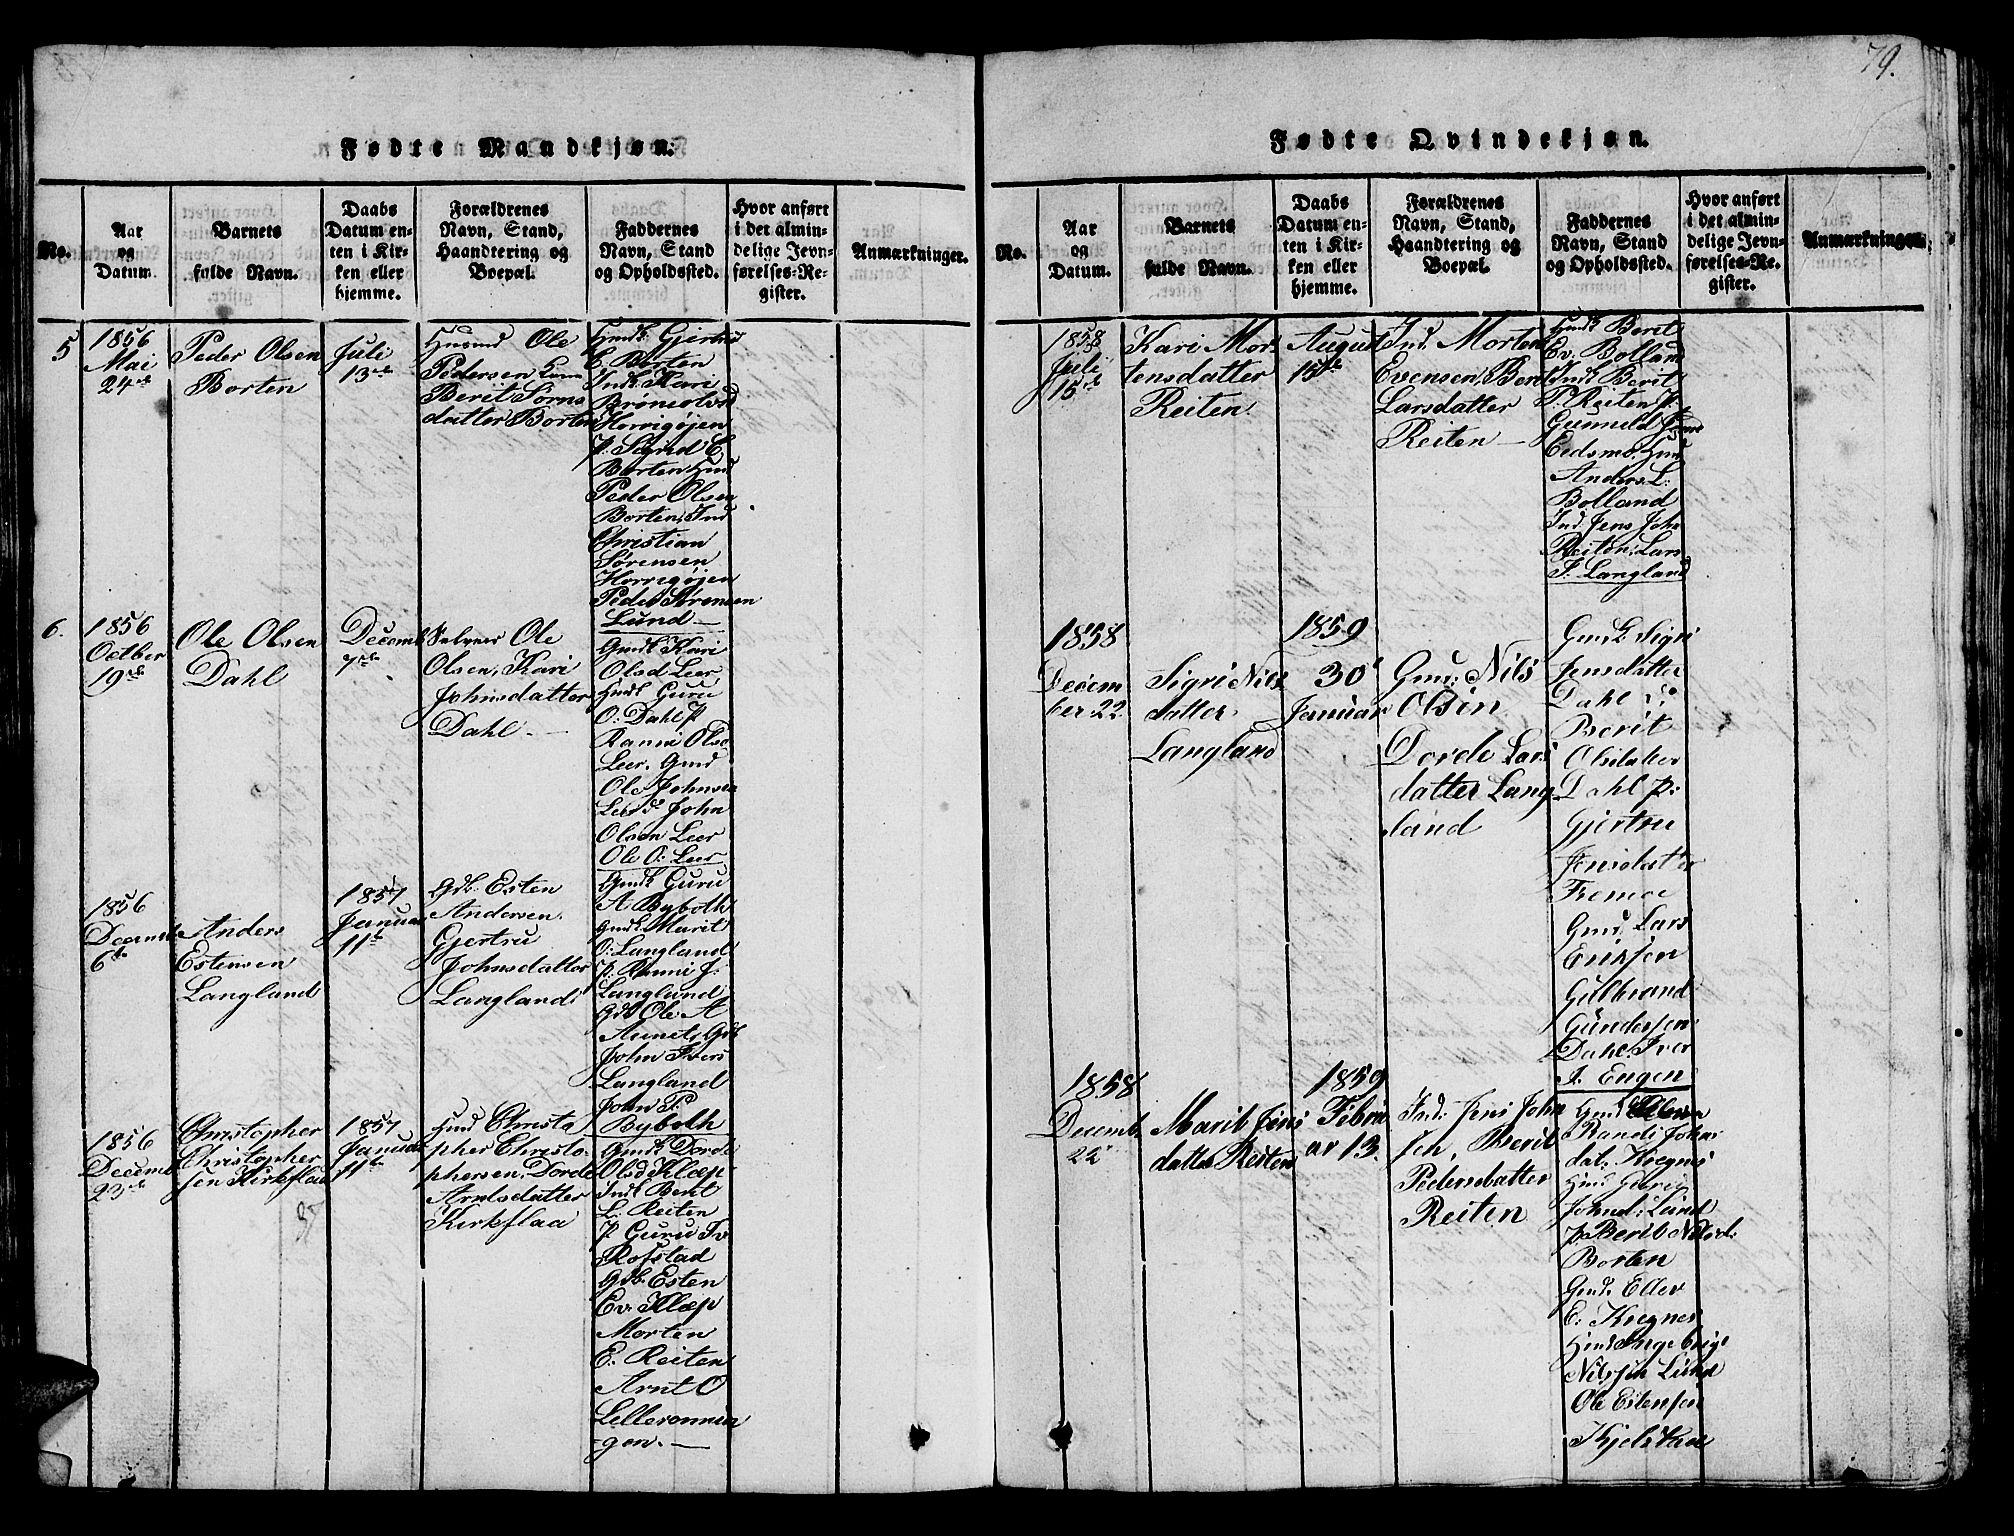 79.
Fødte Mandkjøn.
No.
Aar
og
Datum.
Barnets
fulde Navn.
Daabs
Datum en-
ten i Kir-
ken eller
hjemme.
Forældrenes
Navn, Stand,
Haandtering og
Boepæl.
Faddernes
Navn, Stand
og Opholdssted.
Hvor anført
i det almin-
delige Jevn-
førelses-Re-
gister.
Anmærkninger.
5
1856
Mai
24de
Peder Olsen
Borten
Juli
13de
Husmd Ole
Pedersen
Berit Sørns
datter Borten
Gmdk Gjertru
E. Borten
Indk Kari
Horvigøjen
P. Sigrid E.
Borten Hmd
Peder Olsen
Borten, Ind
Christian
Sørensen
Horvigøjen
Peder Sørensen
Lund
6.
1856
Octber
19de
Ole Olsen
Dahl
Decemb
7de
Selveier Ole
Olsen, Kari
Johnsdatter
Dahl
Gmdk Kari
Olsd Leer
Hmdk Guru
O: Dahl P
Ranni Olsd
Leer. Gmd
Ole Johnsen
Leer John
Olsen Leer
Ole O: Leer
1856
Decemb
6te
Anders
Estensen
Langland
1857
Januar
11te
Gdb. Esten
Andersen
Gjertru
Johnsdatter
Langland
Gmdk Guru
A Byboth
Gmdk Marit
O: Langland
P. Ranni J.
Langland
Gdb Ole A
Aunet, Gdb
John Ivers
Langland
John P.
Nyboth
1856
Decemb
23de
Christopher
Christopher
sen Kirkflaa
1857
Januar
11te
Hmd Christo
pher Christo
phersen, Dorde
Arntsdatter
Kirkflaa
Gmdk Dorde
Olsd Klæp
Indk Berit
L. Reiten
P Guru Iv
Rofstad
Gdb. Esten
Ev. Klæp
Morten
E. Reiten
Arnt O
Lilleronnin
gen.
Fødte Qvindekjøn.
No.
Aar
og
Datum.
Barnets
fulde Navn.
Daabs
Datum en-
ten i Kir-
ken eller
hjemme.
Forældrenes
Navn, Stand,
Haandtering og
Boepæl.
Faddernes
Navn, Stand
og Opholdssted.
Hvor anført
i det almin-
delige Jevn-
førelses-Re-
gister.
Anmærkninger.
1858
Juli
15de
Kari Mor
tensdatter
Reiten.
August
15de
Ind. Morten
Evensen, Berit
Larsdatter
Reiten
Hmdk Berit
Ev. Bolland
Indk Berit
P. Reiten P.
Gunnild
Eidsmo. Hmd
Anders L:
Bolland
Ind. Jens Joh
Reiten, Lars
J. Langland
1858
Decem
ber 22.
Sigri Nils
datter
Langland
1859
30
Januar
Gmd. Nils
Olsen
Dorde Lars
datter Lang
land
Gmdk Sigri
Jensdatter
Dahl
Berit
Olsdatter
Dahl P:
Gjertru
Jensdatter
Fremoe
Gmd. Lars
Eriksen
Gulbrand
Gundersen
Dahl. Iver
J. Engen
1858
Decemb.
22
Marit Jens
datter Reiten
1859
Febru
ar 13.
Ind. Jens John
sen, Berit
Pedersdatter
Reiten
Randi Johns
dat. Kregnes
Hmd Guri
Johnd. Lund
P. Berit Nilsd.
Borten
Gmd. Eller
E. Kregnes
Hmd Ingebrigt
Nilssen Lund
Ole Estensen
Kjelstad